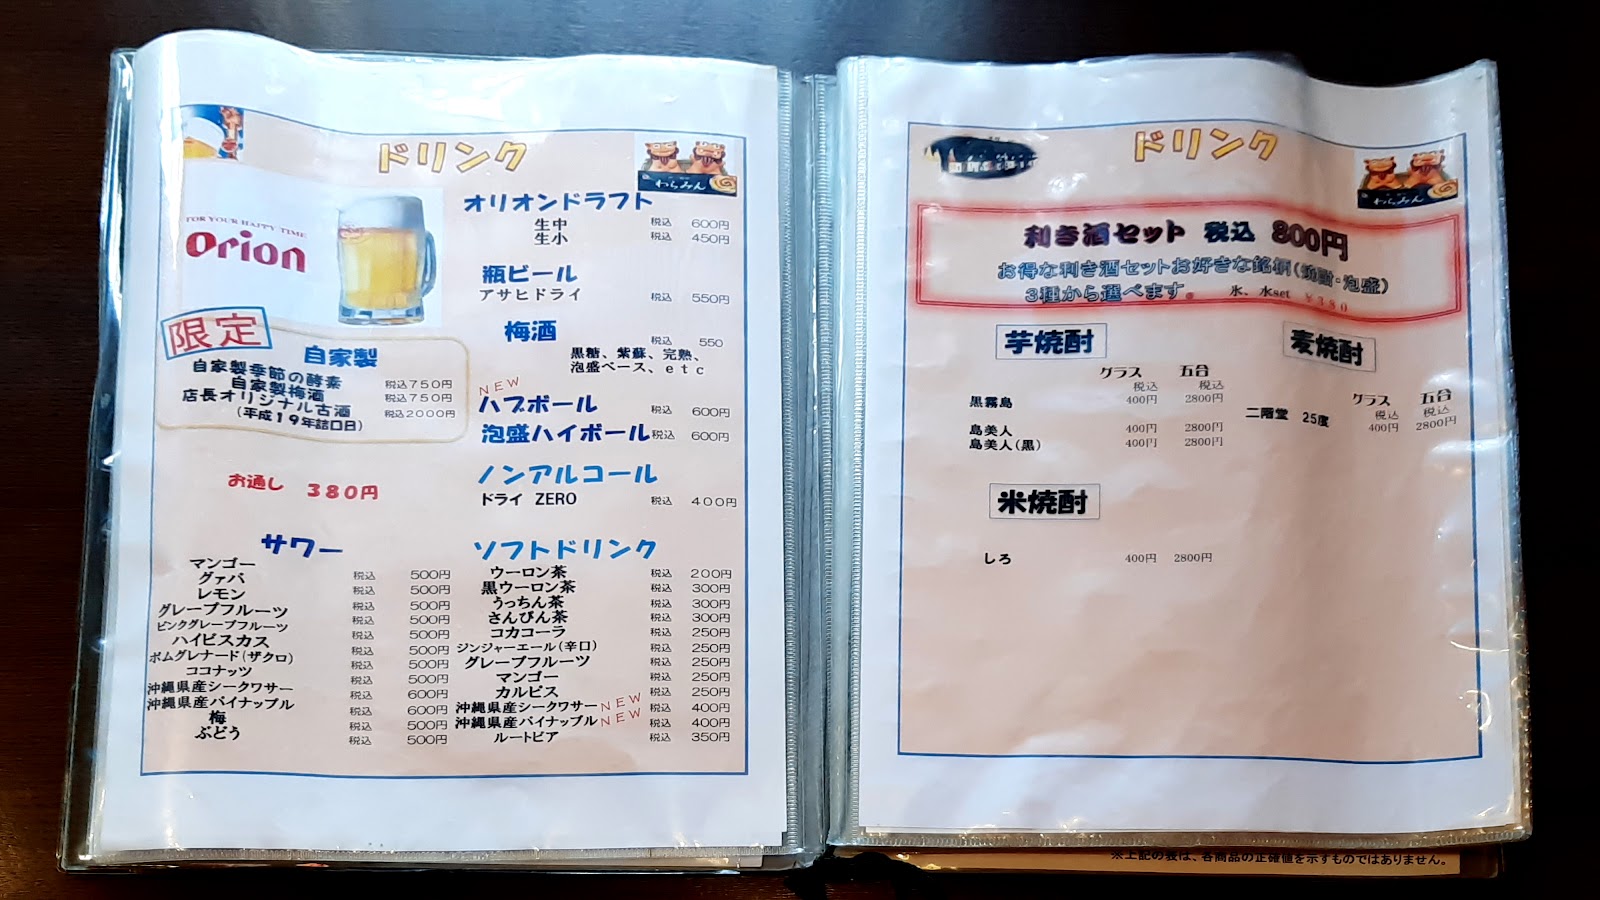 ドリンク
わらみん
FOR YOUR HAPPY TIME
orion
オリオンドラフト
生中 税込 600円
生小 税込 450円
瓶ビール
アサヒドライ 税込 550円
梅酒 税込 550
黒糖、紫蘇、完熟、
泡盛ベース、etc
NEW
ハブボール 税込 600円
泡盛ハイボール 税込 600円
ノンアルコール
ドライ ZERO 税込 400円
限定
自家製
自家製季節の酵素 税込750円
自家製梅酒 税込750円
店長オリジナル古酒 税込2000円
(平成19年詰口日)
お通し 380円
サワー
マンゴー 税込 500円
グァバ 税込 500円
レモン 税込 500円
グレープフルーツ 税込 500円
ピンクグレープフルーツ 税込 500円
ハイビスカス 税込 500円
ポムグレナード(ザクロ) 税込 500円
ココナッツ 税込 500円
沖縄県産シークワサー 税込 600円
沖縄県産パイナップル 税込 600円
梅 税込 500円
ぶどう 税込 500円
ソフトドリンク
ウーロン茶 税込 200円
黒ウーロン茶 税込 300円
うっちん茶 税込 300円
さんぴん茶 税込 300円
コカコーラ 税込 250円
ジンジャーエール(辛口) 税込 250円
グレープフルーツ 税込 250円
マンゴー 税込 250円
カルピス 税込 250円
沖縄県産シークワサー NEW 税込 400円
沖縄県産パイナップル NEW 税込 400円
ルートビア 税込 350円
ドリンク
わらみん
利き酒セット 税込 800円
お得な利き酒セットお好きな銘柄(焼酎・泡盛)
3種から選べます。 氷、水set ¥380
芋焼酎
グラス 五合
税込 税込
黒霧島 400円 2800円
島美人 400円 2800円
島美人(黒) 400円 2800円
麦焼酎
グラス 五合
税込 税込
二階堂 25度 400円 2800円
米焼酎
しろ 400円 2800円
※上記の表は、各商品の正確値を示すものではありません。